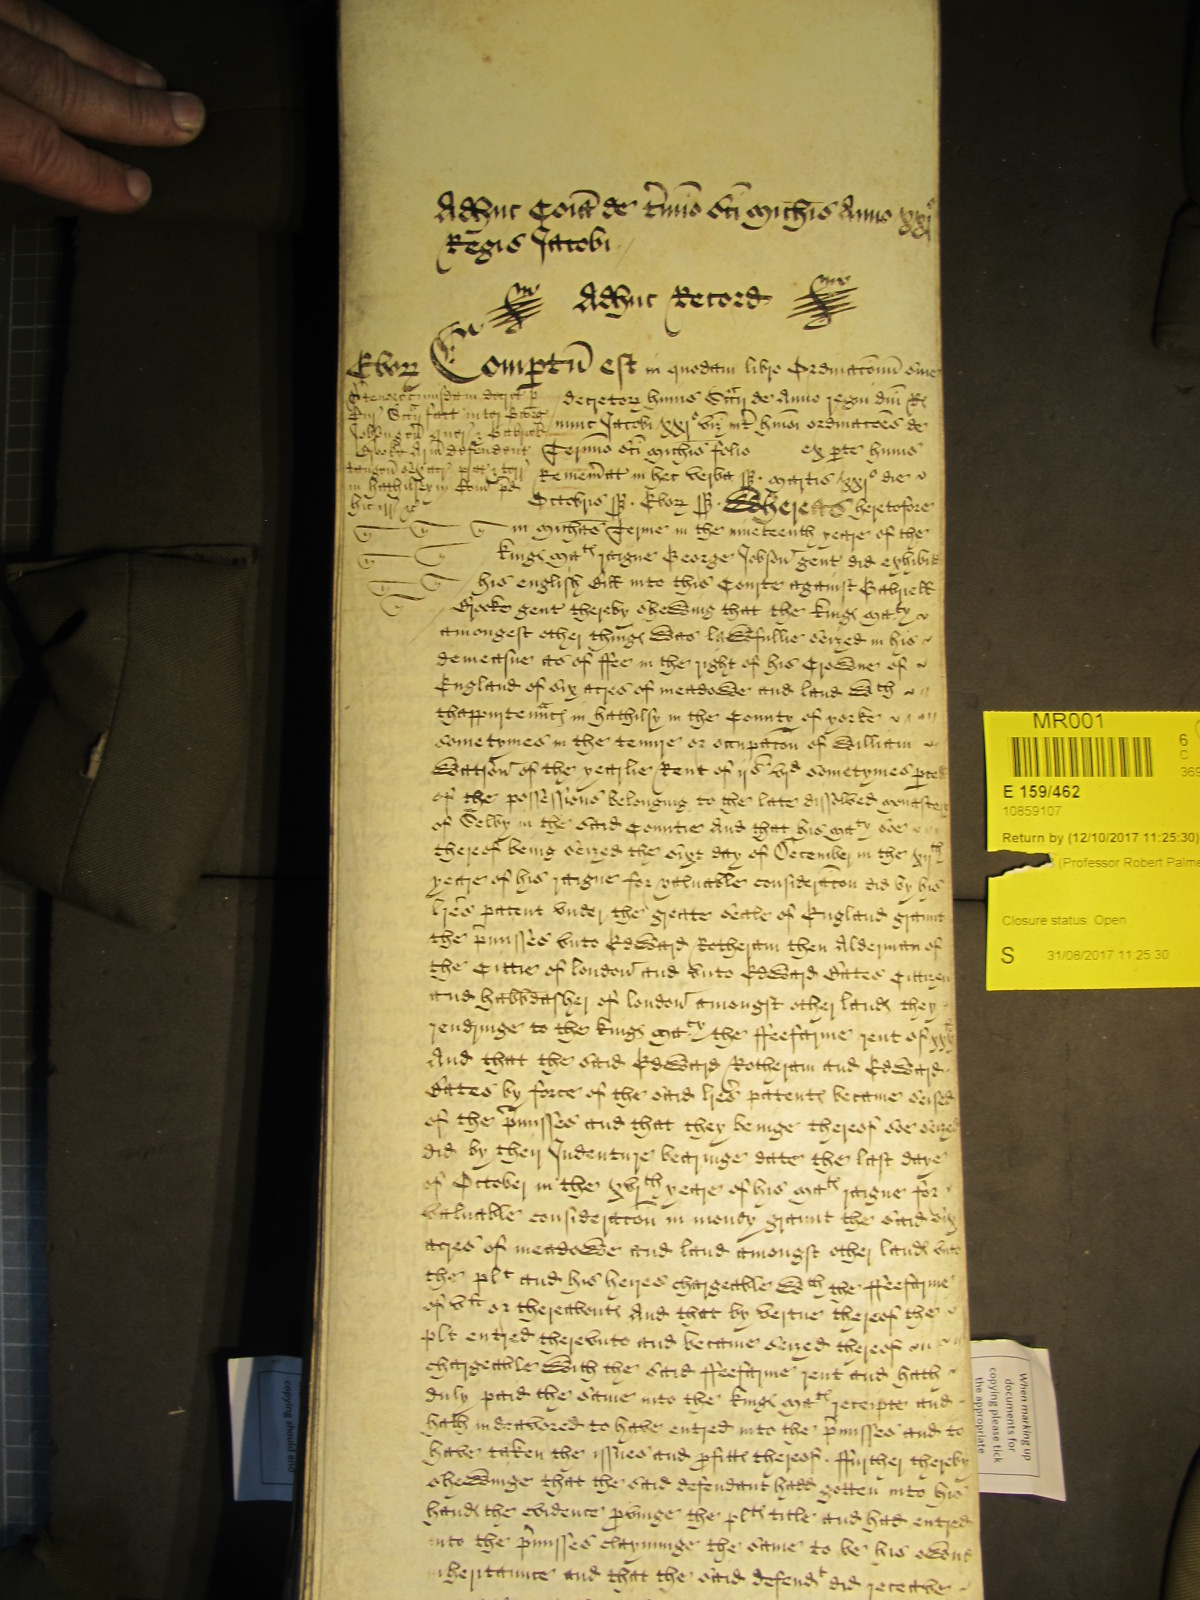 Adhuc Coĩa de t̃mio Sc̃i Mich̃is Anno xxjº
Regis Jacobi
Adhuc Record
Ebor
Compt̃u est in quodam libro Ordinac̃onũ sive
decretor huius Scc̃ij de Anno regni dñi R̃
nunc Jacobi xxjº viz int̃ huiusmoi ordinac̃oes de
Termio Sc̃i Mich̃is folio ex p̱te huius
Rememrat in hec verba ss. Martis xxjº die
Octobris ss. Ebor ss. Whereas heretofore
in Mich̃as Terme in the nineteenth yeare of the
Kinges ma^ts raigne George Jobson gent did exhibit
his english bill into this Courte against Gabriell
Brooke gent thereby shewing that the kinges ma^ty
amongest other thinges was lawfullie seized in his
demeasne as of ffee in the right of his Crowne of
England of six acres of meadowe and land w^th
thappurten̄nces in hathilsy in the County of yorke
sometymes in the tenure or occupac̃on of William
Watson of the yearlie Rent of ijs vjd sometymes p̱cell
of the possessions belonging to the late dissolved monastery
of Selby in the said Countie And that his ma^ty soe
thereof being seized the sixt day of December in the xijth
yeare of his raigne for valuable considerac̃on did by his
l̃res patent vnder the greate Seale of England graunt
the p̃misses vnto Edward Rotheram then Alderman of
the Cittie of london and vnto Edward Bates Citizen
and habbdasher of london amongst other landes they
rendringe to the kinges ma^ty the ffeefarme rent of
And that the said Edward Rotheram and Edward
Bates by force of the said l̃res patentes became seised
of the p̃misses and that they beinge thereof soe seized
did by their Indenture bearinge date the last daye
of October in the xvjth yeare of his ma^ts raigne for
valuable considerac̃on in money graunt the said six
acres of meadowe and land amongst other landes vnto
the pl^t and his heires chargeable w^th the ffeefarme
of or thereaboutes And that by vertue thereof the
pl^t entred therevnto and became seized thereof
chargeable with the said ffeefarme rent and hath
duly paid the same into the kinges ma^ts receipte and
hath indeavored to have entred into the p̃misses and to
have taken the issues and p̱fittes thereof. ffurther thereby
shewinge that the said defendant hadd gotten into his
handes the evidence p̱vinge the pl^ts title and had entred
into the p̃misses clayminge the same to be his owne
inheritance and that the said defend^t did receave
MR001
E 159/462
10859107
Return by (12/10/2017 11:25:30)
(Professor Robert Palme
Closure status: Open
S 31/08/2017 11:25:30
When marking up
documents for
copying please tick
the appropriate
copying should end